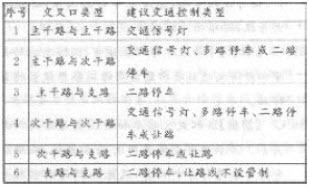 序号 交叉口类型 建议交通控制类型
1 主干路与主干路 交通信号灯
2 主干路与次干路 交通信号灯、多路停车或二路
停车
3 主干路与支路 二路停车
4 次干路与次干路 交通信号灯、多路停车、二路停
车或让路
5 次干路与支路 二路停车或让路
6 支路与支路 二路停车,让路或不设管制